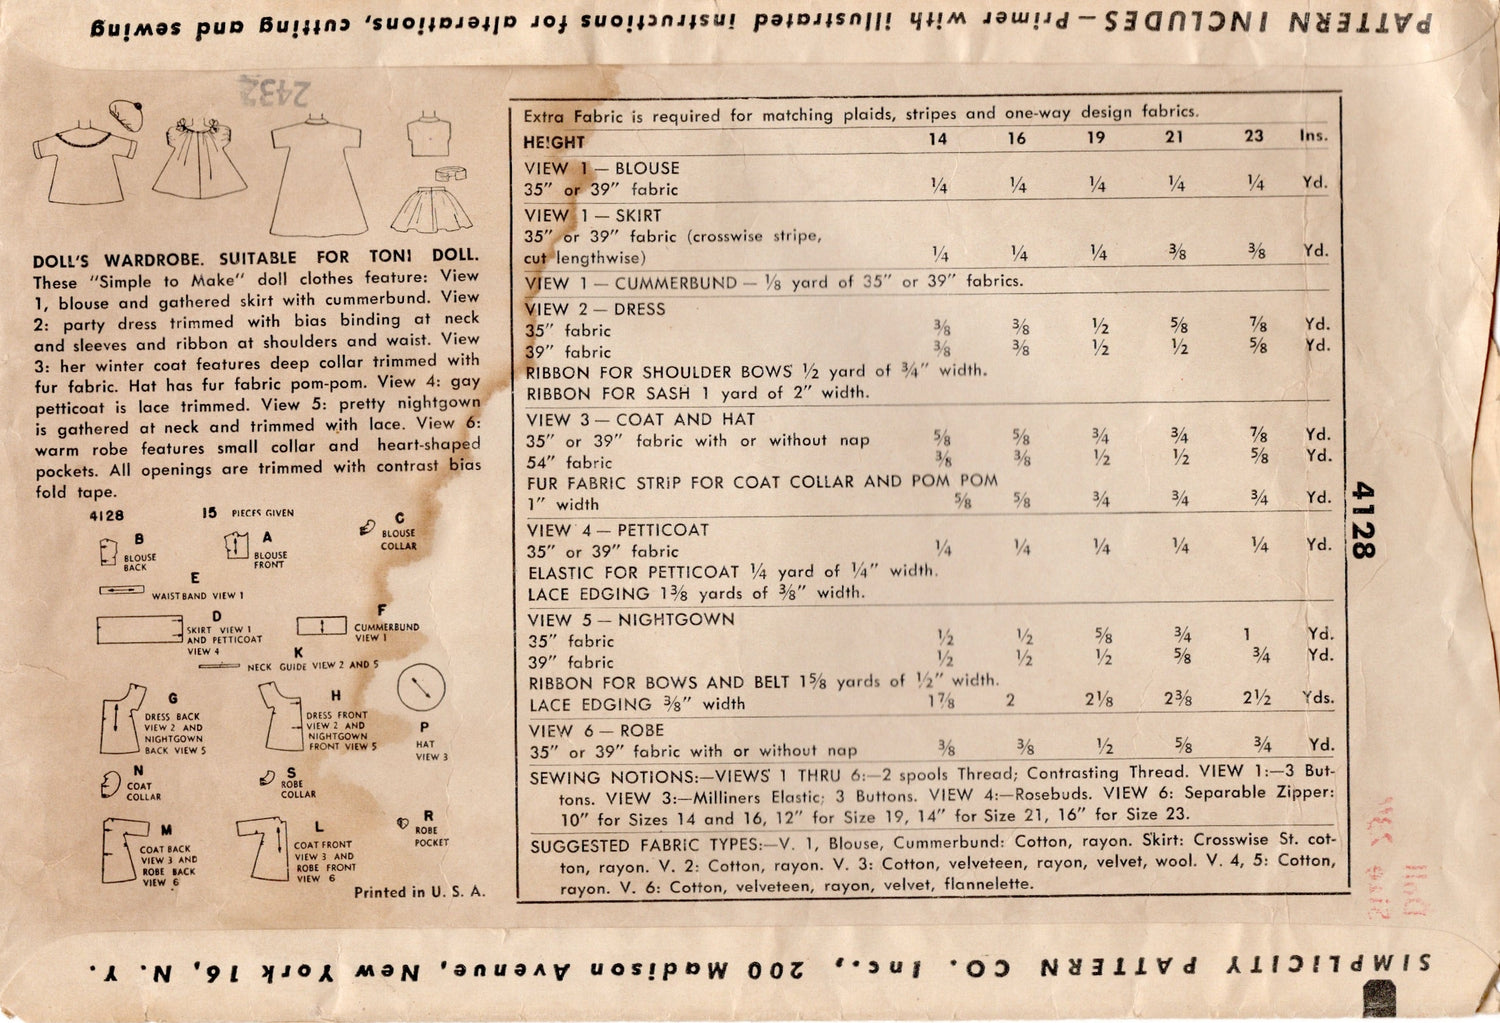 PATTERN INCLUDES—Primer with illustrated instructions for alterations, cutting and sewing
2432
DOLL'S WARDROBE. SUITABLE FOR TONI DOLL.
These "Simple to Make" doll clothes feature: View
1, blouse and gathered skirt with cummerbund. View
2: party dress trimmed with bias binding at neck
and sleeves and ribbon at shoulders and waist. View
3: her winter coat features deep collar trimmed with
fur fabric. Hat has fur fabric pom-pom. View 4: gay
petticoat is lace trimmed. View 5: pretty nightgown
is gathered at neck and trimmed with lace. View 6:
warm robe features small collar and heart-shaped
pockets. All openings are trimmed with contrast bias
fold tape.
4128 15 PIECES GIVEN
B
BLOUSE
BACK
A
BLOUSE
FRONT
C
BLOUSE
COLLAR
E
WAISTBAND VIEW 1
D
SKIRT VIEW 1
AND PETTICOAT
VIEW 4
F
CUMMERBUND
VIEW 1
K
NECK GUIDE VIEW 2 AND 5
G
DRESS BACK
VIEW 2 AND
NIGHTGOWN
BACK VIEW 5
H
DRESS FRONT
VIEW 2 AND
NIGHTGOWN
FRONT VIEW 5
P
HAT
VIEW 3
N
COAT
COLLAR
S
ROBE
COLLAR
M
COAT BACK
VIEW 3 AND
ROBE BACK
VIEW 6
L
COAT FRONT
VIEW 3 AND
ROBE FRONT
VIEW 6
R
ROBE
POCKET
Printed in U. S. A.
Extra Fabric is required for matching plaids, stripes and one-way design fabrics.
HEIGHT 14 16 19 21 23 Ins.
VIEW 1 — BLOUSE
35" or 39" fabric ¼ ¼ ¼ ¼ ¼ Yd.
VIEW 1 — SKIRT
35" or 39" fabric (crosswise stripe,
cut lengthwise) ¼ ¼ ¼ ⅜ ⅜ Yd.
VIEW 1 — CUMMERBUND — ⅛ yard of 35" or 39" fabrics.
VIEW 2 — DRESS
35" fabric ⅜ ⅜ ½ ⅝ ⅞ Yd.
39" fabric ⅜ ⅜ ½ ½ ⅝ Yd.
RIBBON FOR SHOULDER BOWS ½ yard of ¾" width.
RIBBON FOR SASH 1 yard of 2" width.
VIEW 3 — COAT AND HAT
35" or 39" fabric with or without nap ⅝ ⅝ ¾ ¾ ⅞ Yd.
54" fabric ⅜ ⅜ ½ ½ ⅝ Yd.
FUR FABRIC STRIP FOR COAT COLLAR AND POM POM
1" width ⅝ ⅝ ¾ ¾ ¾ Yd.
VIEW 4 — PETTICOAT
35" or 39" fabric ¼ ¼ ¼ ¼ ¼ Yd.
ELASTIC FOR PETTICOAT ¼ yard of ¼" width.
LACE EDGING 1⅜ yards of ⅜" width.
VIEW 5 — NIGHTGOWN
35" fabric ½ ½ ⅝ ¾ 1 Yd.
39" fabric ½ ½ ½ ⅝ ¾ Yd.
RIBBON FOR BOWS AND BELT 1⅝ yards of ½" width.
LACE EDGING ⅜" width 1⅞ 2 2⅛ 2⅜ 2½ Yds.
VIEW 6 — ROBE
35" or 39" fabric with or without nap ⅜ ⅜ ½ ⅝ ¾ Yd.
SEWING NOTIONS:—VIEWS 1 THRU 6:—2 spools Thread; Contrasting Thread. VIEW 1:—3 But-
tons. VIEW 3:—Milliners Elastic; 3 Buttons. VIEW 4:—Rosebuds. VIEW 6: Separable Zipper:
10" for Sizes 14 and 16, 12" for Size 19, 14" for Size 21, 16" for Size 23.
SUGGESTED FABRIC TYPES:—V. 1, Blouse, Cummerbund: Cotton, rayon. Skirt: Crosswise St. cot-
ton, rayon. V. 2: Cotton, rayon. V. 3: Cotton, velveteen, rayon, velvet, wool. V. 4, 5: Cotton,
rayon. V. 6: Cotton, velveteen, rayon, velvet, flannelette.
4128
Doll
SIMPLICITY PATTERN CO. Inc., 200 Madison Avenue, New York 16, N. Y.